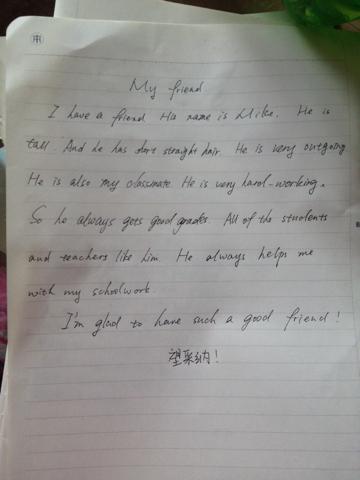 My friend
I have a friend His name is Mike. He is
tall And he has short straight hair. He is very outgoing
He is also my classmate He is very hard-working.
So he always gets good grades. All of the students
and teachers like him He always helps me
with my schoolwork
I'm glad to have such a good friend!
望采纳!